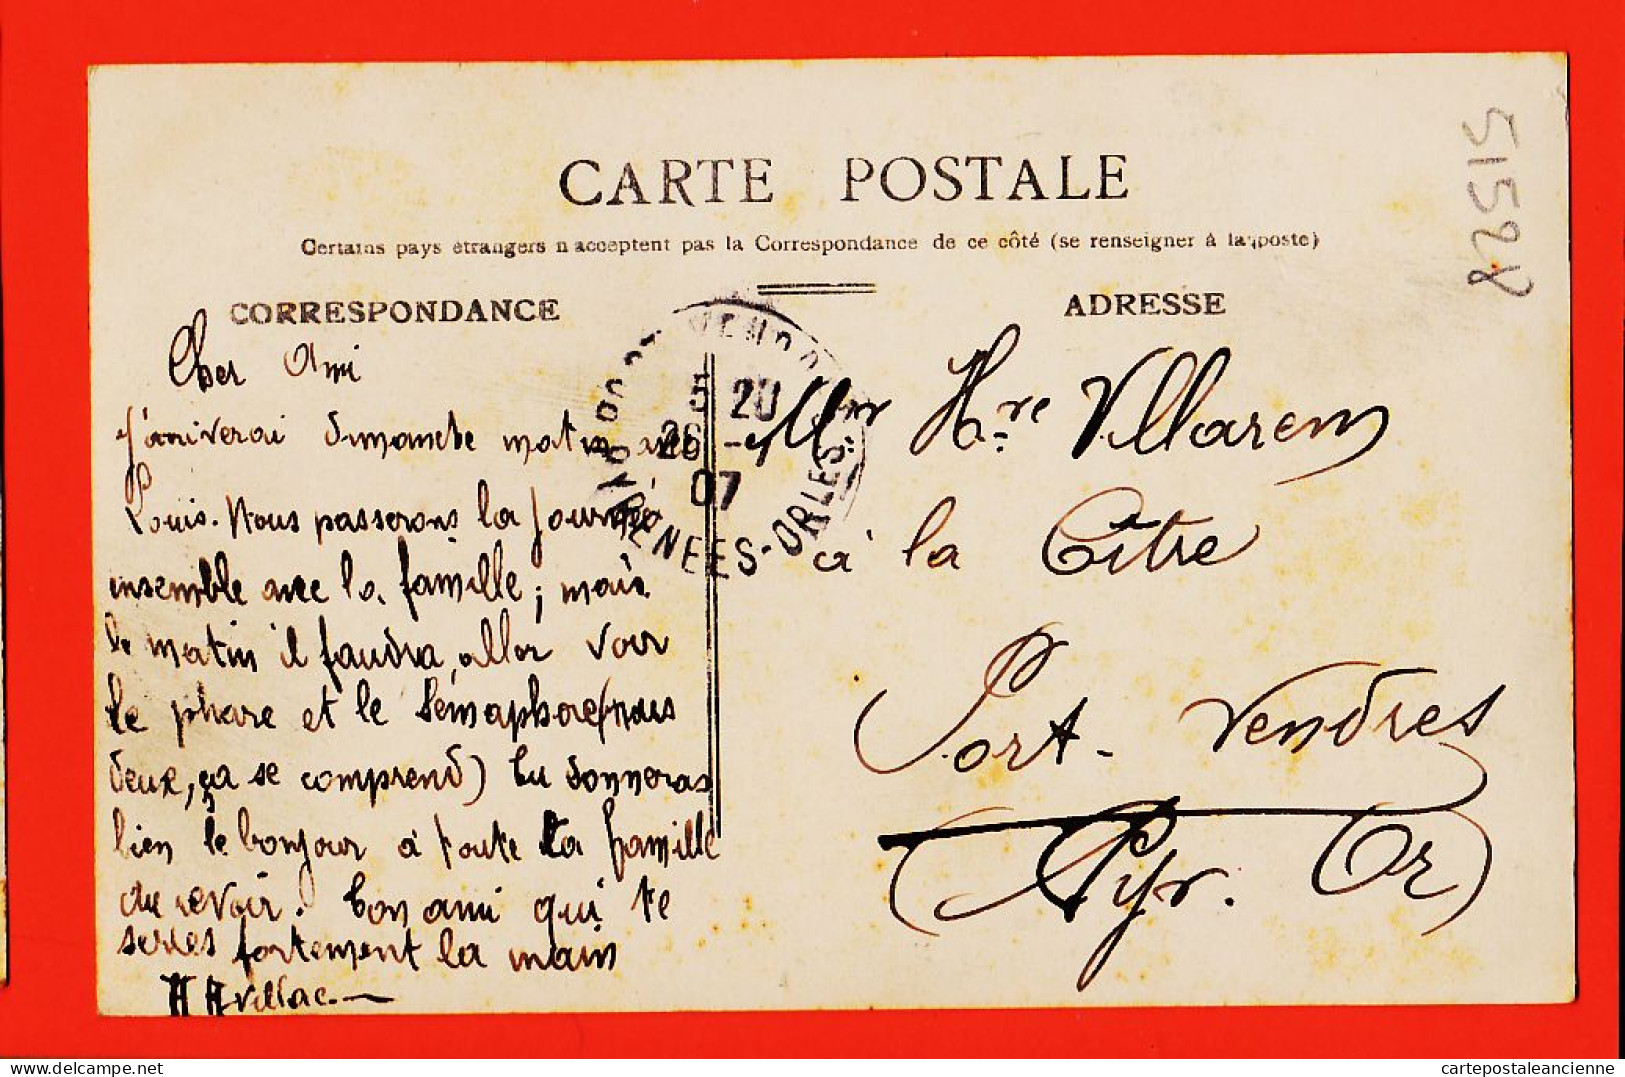 CARTE POSTALE
Certains pays étrangers n'acceptent pas la Correspondance de ce côté (se renseigner à la poste)
CORRESPONDANCE
ADRESSE
51528
Cher Ami
J'arriverai dimanche matin avec
Louis. Nous passerons la journée
ensemble avec la famille; mais
le matin il faudra aller voir
le phare et le sémaphore (nous
deux, ça se comprend) tu donneras
bien le bonjour à toute la famille
au revoir. Ton ami qui te
serres fortement la main
PORT-VENDRES
5 20
26
07
PYRENEES-ORLES
Mr Hre Villarem
à la Cître
Port-Vendres
(Pyr. Or)
cartepostaleancienne
https://www.cartepostaleancienne.com
cartepostaleancienne